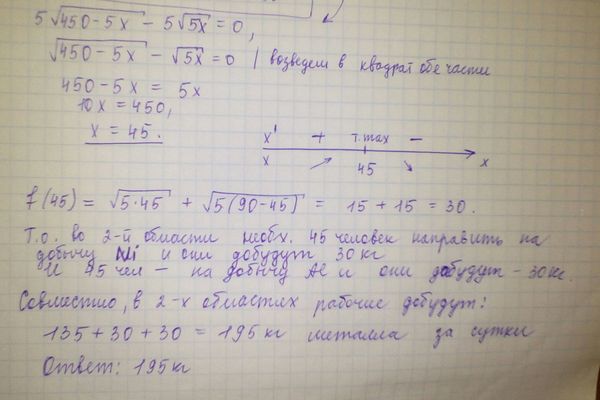 5√(450-5x) - 5√(5x) = 0,
√(450-5x) - √(5x) = 0 | возведем в квадрат обе части
450-5x = 5x
10x = 450,
x = 45.
x' + т.max -
x 45 x
f(45) = √(5·45) + √(5(90-45)) = 15 + 15 = 30.
Т.о. во 2-й области необх. 45 человек направить на
добычу Ni и они добудут 30 кг
и 45 чел — на добычу Al и они добудут - 30 кг.
Совместно, в 2-х областях рабочие добудут:
135 + 30 + 30 = 195 кг металла за сутки
Ответ: 195 кг